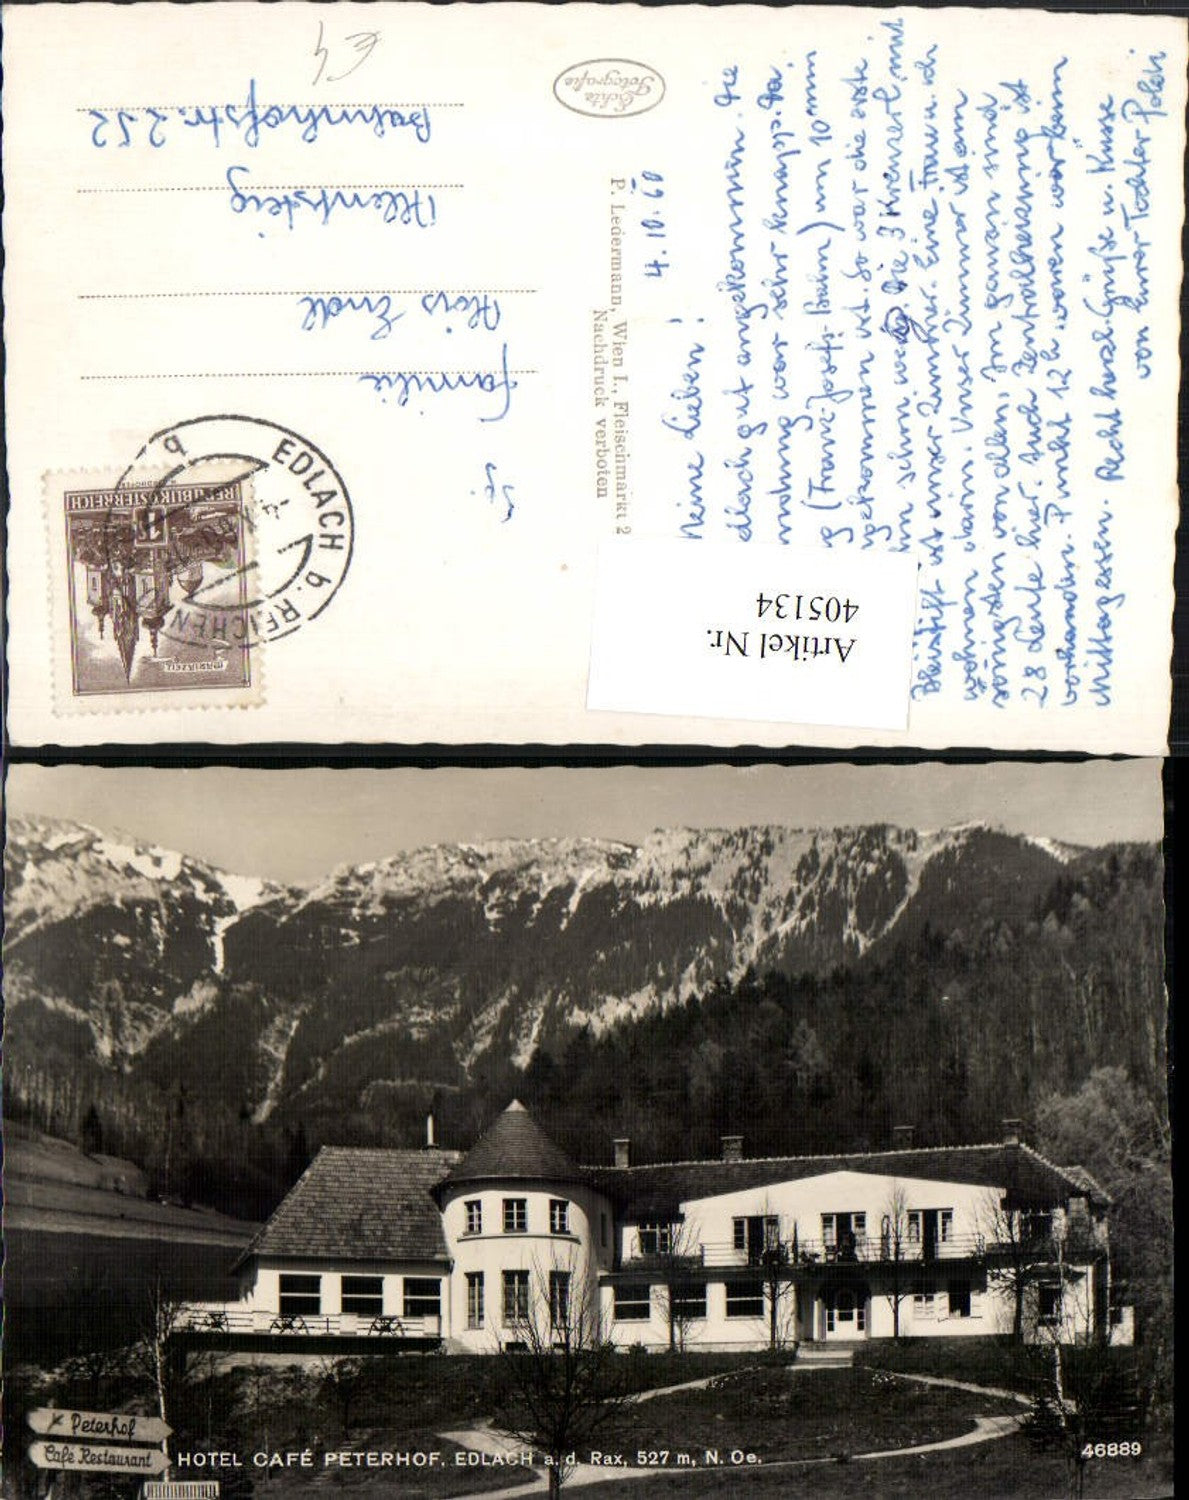 € 4
Echte
Fotografie
P. Ledermann, Wien I., Fleischmarkt 2
Nachdruck verboten
Familie
Alois Endl
Allentsteig
Bahnhofstr. 252
REPUBLIK ÖSTERREICH
MARIAZELL
EDLACH b. REICHEN
4.
Meine Lieben!
gut angekommen. Die
war sehr knapp. Da
(Franz-Josefs-Bahn) um 10
ist. So war die erste
schon weg. Die 3 mit
Bleistift ist unser Zimmer. Eine Frau u. ich
wohnen darin. Unser Zimmer ist am
von allen, Im ganzen sind
28 Leute hier. Auch Zentralheizung ist
vorhanden. Punkt 12 h waren wir beim
Mittagessen. Recht herzl. Grüße u. Küsse
von Eurer Tochter Poldi
Artikel Nr.
405134
Peterhof
Café Restaurant
HOTEL CAFÉ PETERHOF, EDLACH a. d. Rax, 527 m, N. Oe.
46889